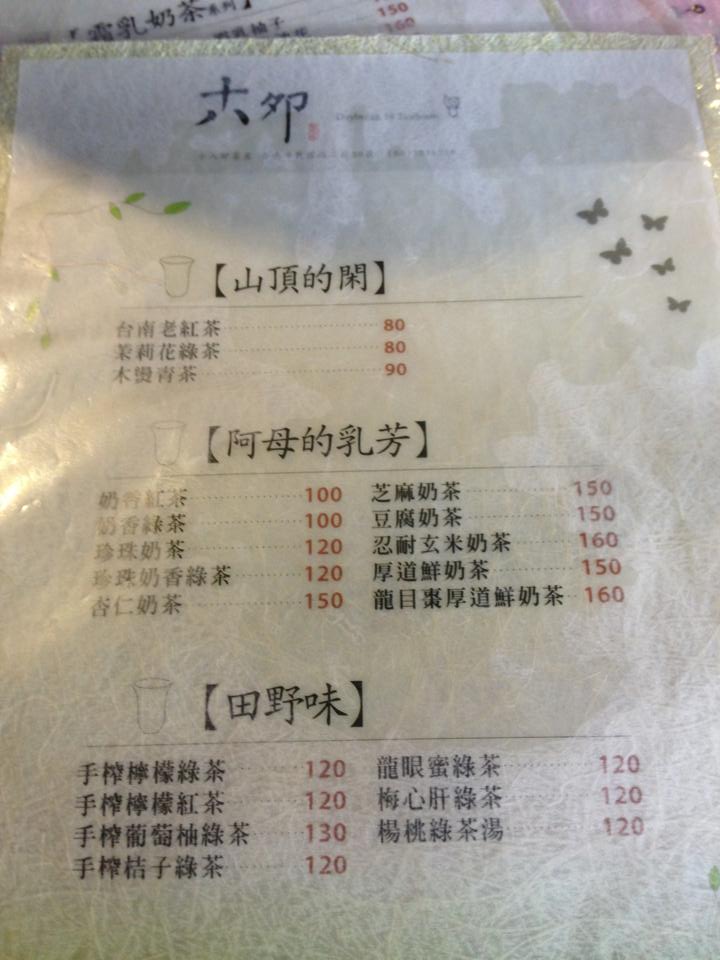 【霜乳奶茶系列】
150
160
【山頂的閑】
台南老紅茶 80
茉莉花綠茶 80
木燙青茶 90
【阿母的乳芳】
奶香紅茶 100
奶香綠茶 100
珍珠奶茶 120
珍珠奶香綠茶 120
杏仁奶茶 150
芝麻奶茶 150
豆腐奶茶 150
忍耐玄米奶茶 160
厚道鮮奶茶 150
龍目棗厚道鮮奶茶 160
【田野味】
手榨檸檬綠茶 120
手榨檸檬紅茶 120
手榨葡萄柚綠茶 130
手榨桔子綠茶 120
龍眼蜜綠茶 120
梅心肝綠茶 120
楊桃綠茶湯 120